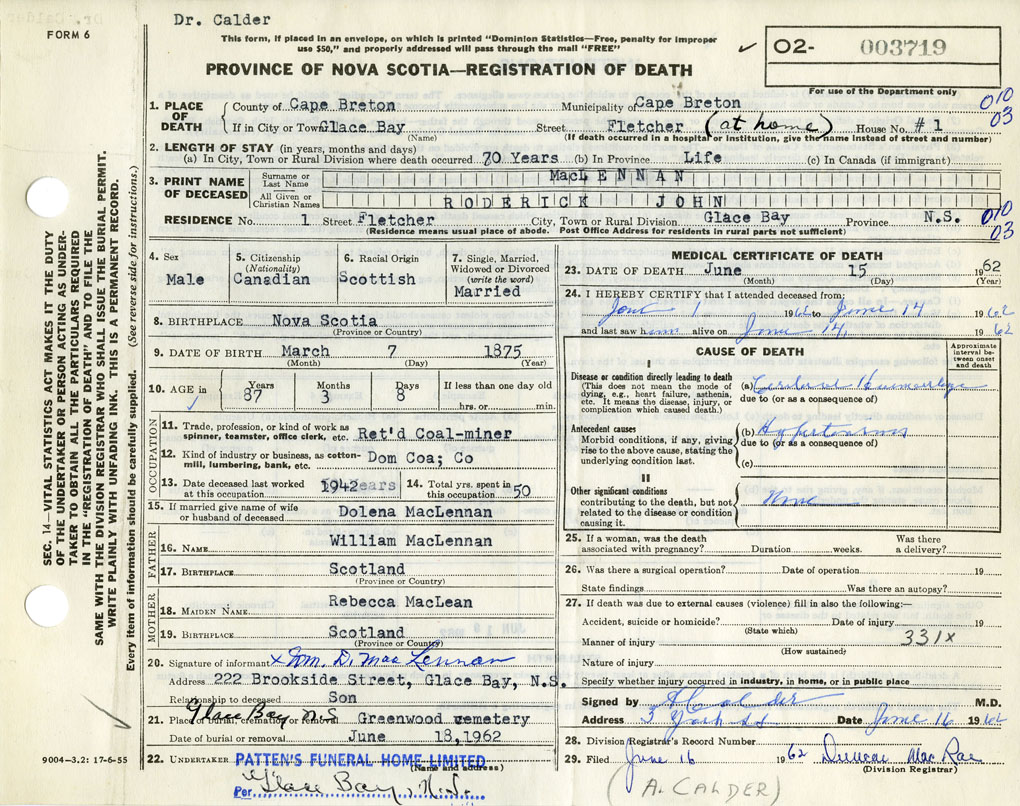 Dr. Calder
FORM 6
This form, if placed in an envelope, on which is printed "Dominion Statistics—Free, penalty for improper
use $50," and properly addressed will pass through the mail "FREE"
✓ O2- 003719
PROVINCE OF NOVA SCOTIA—REGISTRATION OF DEATH
For use of the Department only
010
03
1. PLACE OF DEATH
County of Cape Breton Municipality of Cape Breton
If in City or Town Glace Bay (Name) Street Fletcher (at home) House No. #1
(If death occurred in a hospital or institution, give the name instead of street and number)
2. LENGTH OF STAY (in years, months and days)
(a) In City, Town or Rural Division where death occurred 70 Years (b) In Province Life (c) In Canada (if immigrant)
3. PRINT NAME OF DECEASED
Surname or Last Name MacLENNAN
All Given or Christian Names RODERICK JOHN
RESIDENCE No. 1 Street Fletcher City, Town or Rural Division Glace Bay Province N.S.
(Residence means usual place of abode. Post Office Address for residents in rural parts not sufficient)
010
03
4. Sex
Male
5. Citizenship
(Nationality)
Canadian
6. Racial Origin
Scottish
7. Single, Married,
Widowed or Divorced
(write the word)
Married
8. BIRTHPLACE Nova Scotia
(Province or Country)
9. DATE OF BIRTH March 7 1875
(Month) (Day) (Year)
10. AGE in Years 87 Months 3 Days 8 If less than one day old
hrs. or min.
OCCUPATION
11. Trade, profession, or kind of work as
spinner, teamster, office clerk, etc. Ret'd Coal-miner
12. Kind of industry or business, as cotton-
mill, lumbering, bank, etc. Dom Coa; Co
13. Date deceased last worked
at this occupation 1942
14. Total yrs. spent in
this occupation 50
15. If married give name of wife
or husband of deceased Dolena MacLennan
FATHER
16. NAME William MacLennan
17. BIRTHPLACE Scotland
(Province or Country)
MOTHER
18. MAIDEN NAME Rebecca MacLean
19. BIRTHPLACE Scotland
(Province or Country)
20. Signature of informant x Wm. D. MacLennan
Address 222 Brookside Street, Glace Bay, N.S.
Relationship to deceased Son
Glace Bay N.S.
21. Place of burial, cremation or removal Greenwood cemetery
Date of burial or removal June 18, 1962
22. UNDERTAKER PATTEN'S FUNERAL HOME LIMITED
(Name and address)
Per Glace Bay, N.S.
MEDICAL CERTIFICATE OF DEATH
23. DATE OF DEATH June 15 1962
(Month) (Day) (Year)
24. I HEREBY CERTIFY that I attended deceased from:
1 1962 to June 14 1962
and last saw him alive on June 14, 1962
CAUSE OF DEATH
Approximate
interval be-
tween onset
and death
I
Disease or condition directly leading to death
(This does not mean the mode of
dying, e.g., heart failure, asthenia,
etc. It means the disease, injury, or
complication which caused death.)
(a) Cerebral Haemorrhage
due to (or as a consequence of)
Antecedent causes
Morbid conditions, if any, giving
rise to the above cause, stating the
underlying condition last.
(b)
due to (or as a consequence of)
(c)
II
Other significant conditions
contributing to the death, but not
related to the disease or condition
causing it.
None
25. If a woman, was the death
associated with pregnancy? Duration weeks. Was there
a delivery?
26. Was there a surgical operation? Date of operation 19
State findings Was there an autopsy?
27. If death was due to external causes (violence) fill in also the following:—
Accident, suicide or homicide? Date of injury 19
(State which)
Manner of injury 331x
(How sustained)
Nature of injury
Specify whether injury occurred in industry, in home, or in public place
Signed by A Calder M.D.
Address 3 York St Date June 16 1962
28. Division Registrar's Record Number
29. Filed June 16 1962 Duncan MacRae
(Division Registrar)
(A. CALDER)
SEC. 14—VITAL STATISTICS ACT MAKES IT THE DUTY
OF THE UNDERTAKER OR PERSON ACTING AS UNDER-
TAKER TO OBTAIN ALL THE PARTICULARS REQUIRED
IN THE "REGISTRATION OF DEATH" AND TO FILE THE
SAME WITH THE DIVISION REGISTRAR WHO SHALL ISSUE THE BURIAL PERMIT.
WRITE PLAINLY WITH UNFADING INK. THIS IS A PERMANENT RECORD.
Every item of information should be carefully supplied. (See reverse side for instructions.)
9004—3.2: 17-6-55